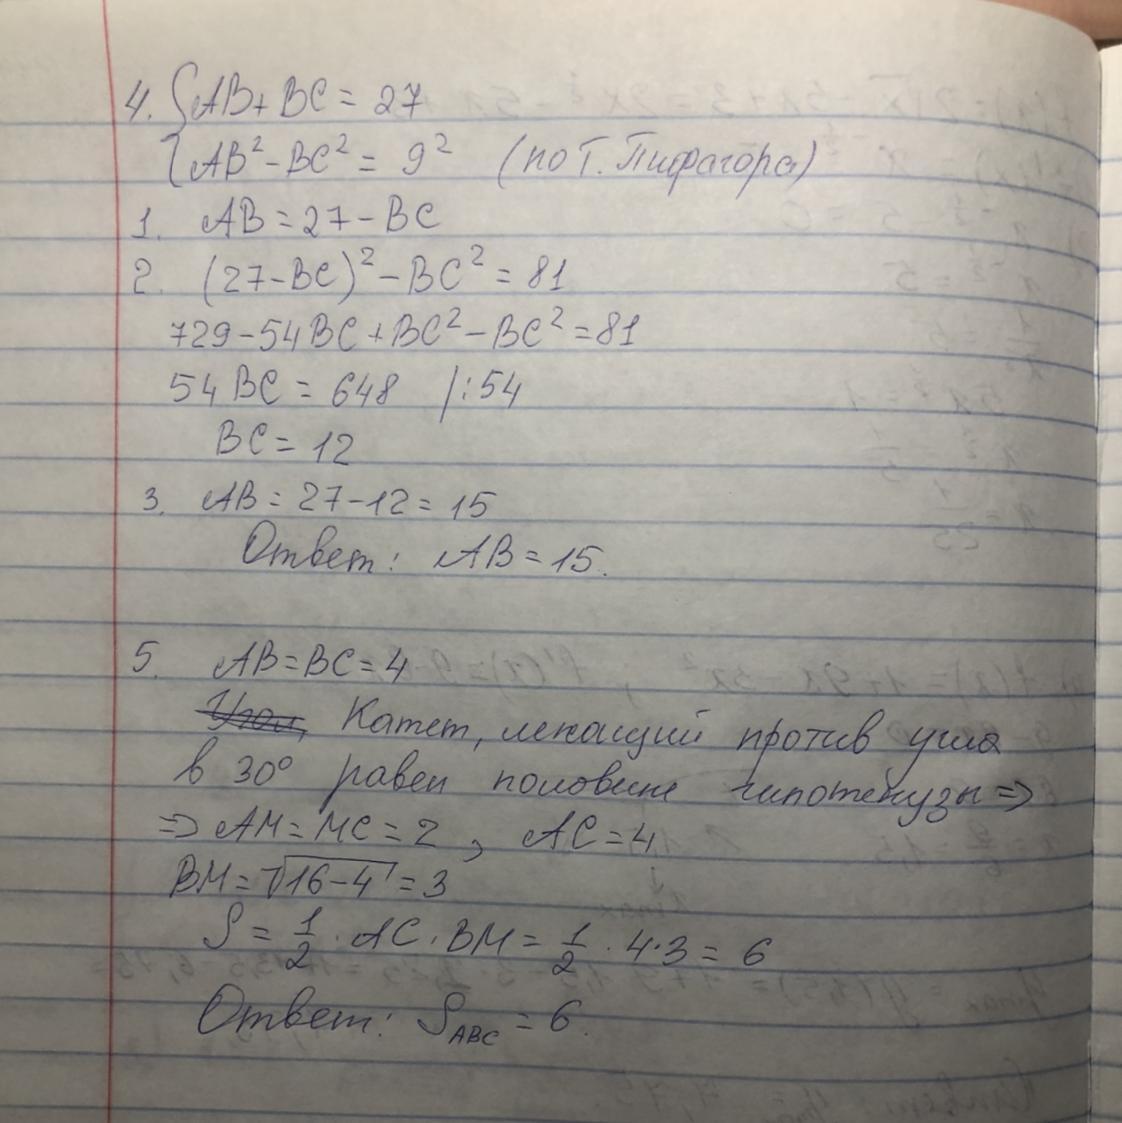 4. { AB + BC = 27
AB² - BC² = 9² (по Т. Пифагора)
1. AB = 27 - BC
2. (27 - BC)² - BC² = 81
729 - 54BC + BC² - BC² = 81
54 BC = 648 /:54
BC = 12
3. AB = 27 - 12 = 15
Ответ: AB = 15.
5. AB = BC = 4
Катет, лежащий против угла
в 30° равен половине гипотенузы ⇒
⇒ AM = MC = 2, AC = 4
BM = √16 - 4 = 3
S = 1/2 · AC · BM = 1/2 · 4 · 3 = 6
Ответ: S ABC = 6.